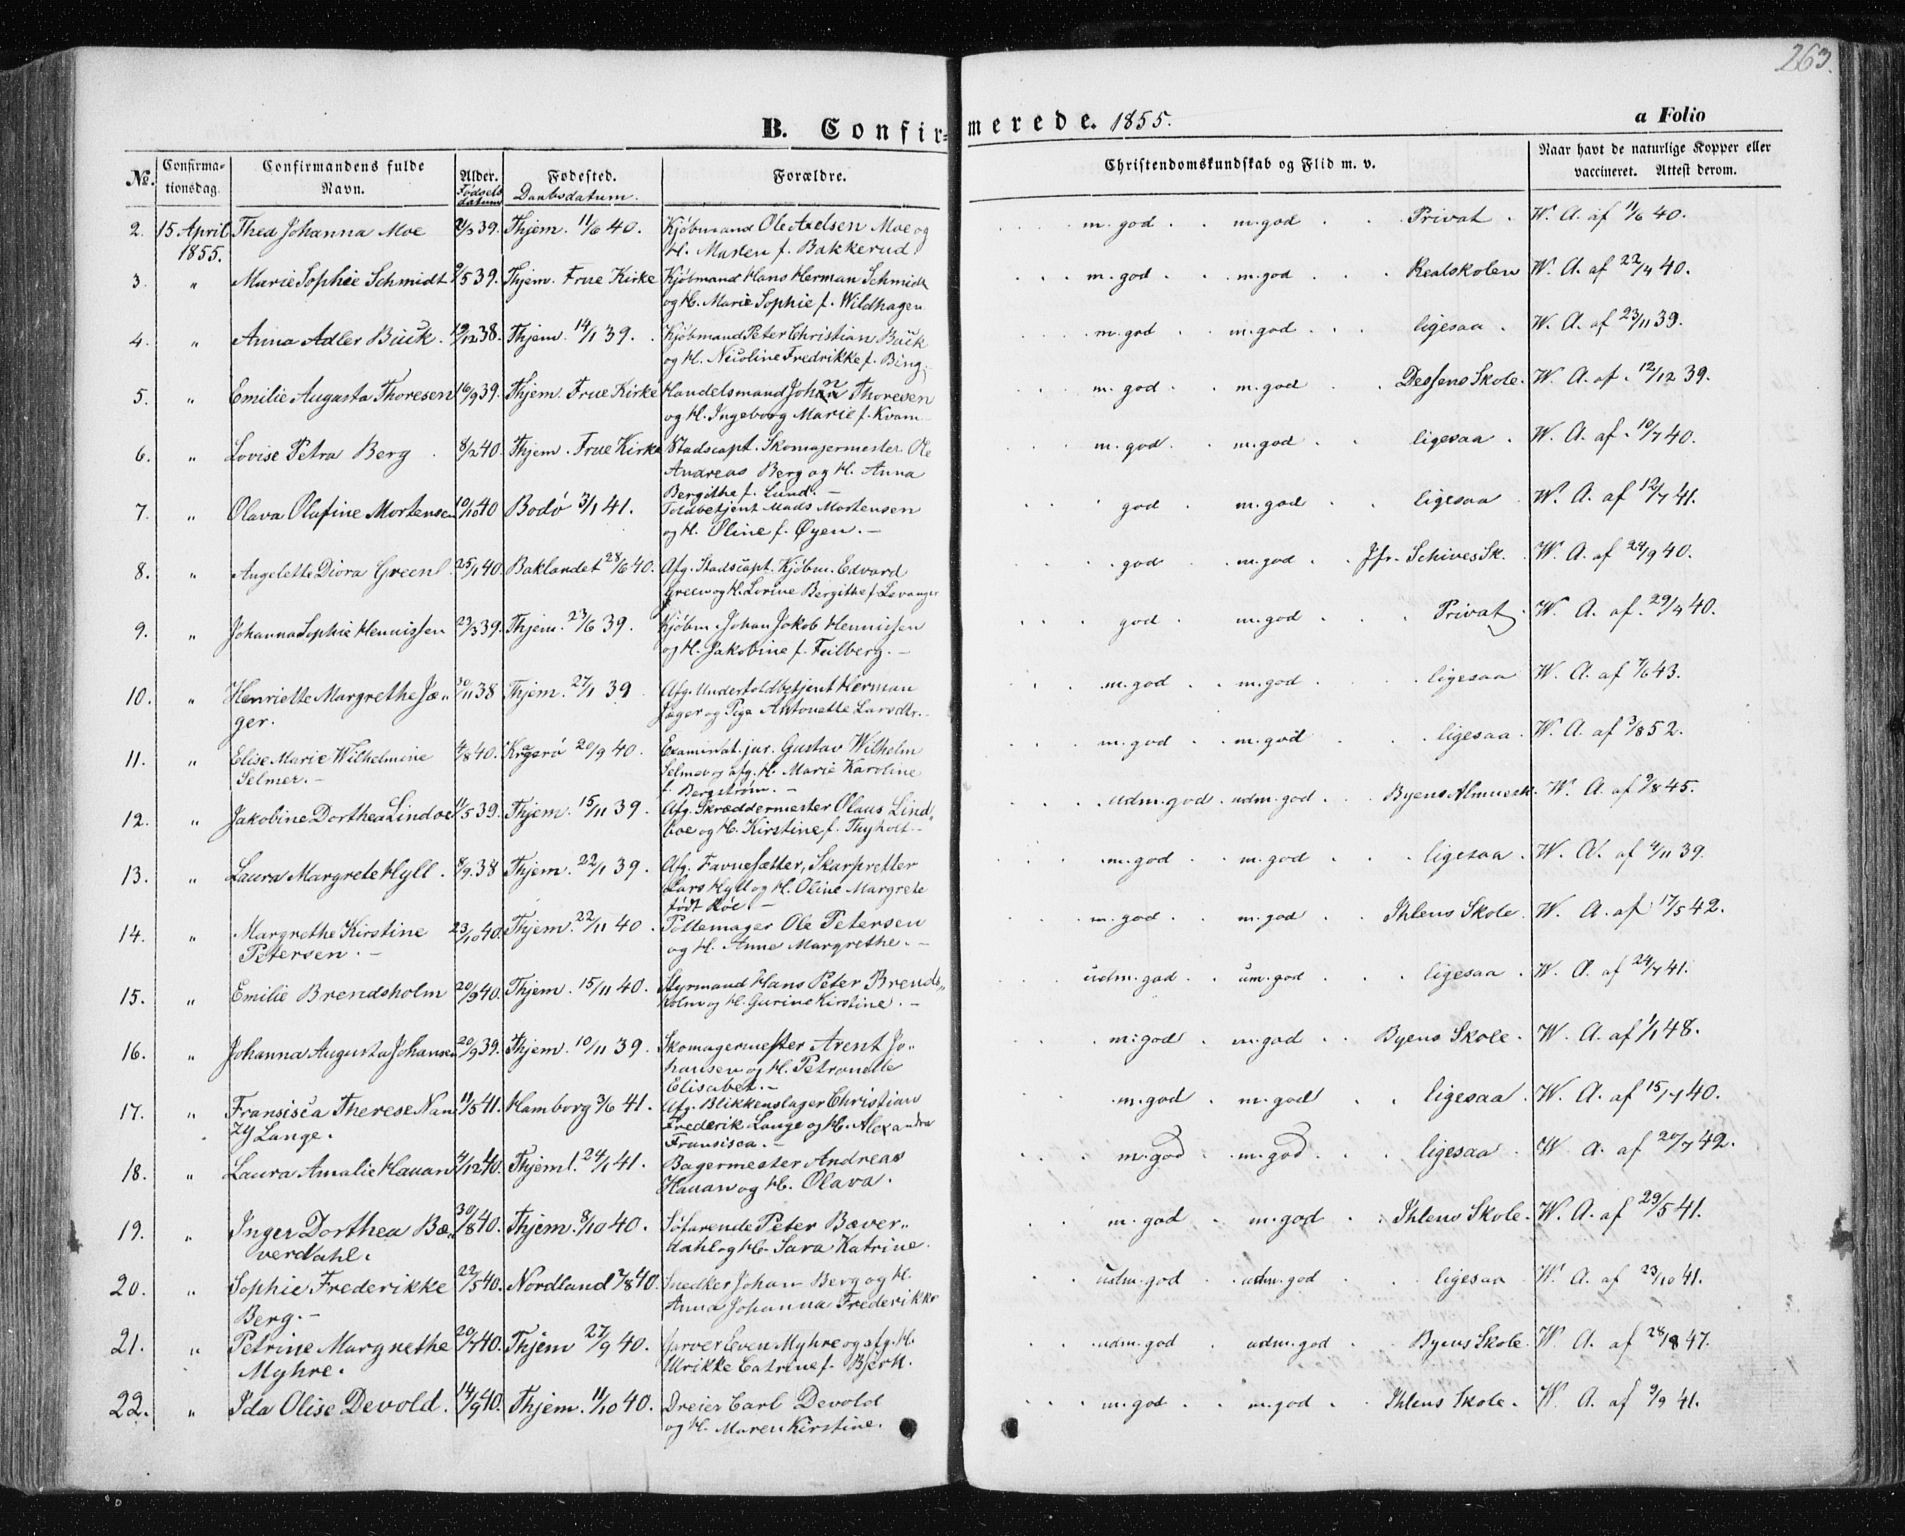 263.
B. Confir=merede. 1855. a Folio
No. Confirmationsdag. Confirmandens fulde Navn. Alder. Fødselsdatum Fødested. Daabsdatum. Forældre. Christendomskundskab og Flid m. v. Naar havt de naturlige Kopper eller vaccineret. Attest derom.
2. 15 April Thea Johanna Moe 39. Thjem. 11/6 40. Kjøbmand Ole Axelsen Moe og m. god m. god Privat W. A. af 11/6 40.
1855. H. Maren f. Bakkerud
3. " Marie Sophie Schmidt 9/5 39. Thjem. Frue Kirke Kjøbmand Hans Herman Schmidt m. god m. god Realskolen W. A. af 22/4 40.
og H. Marie Sophie f. Wildhagen
4. " Anna Adler Buck. 19/12 38. Thjem. 14/1 39. Kjøbmand Peter Christian Buck m. god m. god ligesaa W. A. af 23/11 39.
og H. Nicoline Fredrikke f. Bing.
5. " Emilie Augusta Thoresen 16/9 39. Thjem. Frue Kirke Handelsmand Johan Thoresen m. god m. god Dessens Skole. W. A. af 12/12 39.
og H. Ingeborg Marie f. Kvam
6. " Lovise Petra Berg 8/2 40. Thjem. Frue Kirke Stadscapt. Skomagermester Ole m. god m. god ligesaa W. A. af 10/7 40.
Andreas Berg og H. Anna
Bergithe f. Lund. -
7. " Olava Olafine Mortensen 10/10 40 Bodø 3/1 41. Toldbetjent Mads Mortensen god m. god ligesaa W. A. af 12/7 41.
og H. Oline f. Øyen. -
8. " Angelette Diora Green 25/1 40. Baklandet 28/6 40. Afg. Stadscapt. Kjøbm. Edvard god m. god Jfr. Schives Sk. W. A. af 24/9 40.
Green og H. Lorine Bergithe f. Levanger
9. " Johanna Sophie Hennissen 23/3 39. Thjem. 23/6 39. Kjøbm. Johan Jakob Hennissen god m. god Privat W. A. af 29/4 40.
og H. Jakobine f. Feilberg. -
10. " Henriette Margrethe Jæ= 30/11 38 Thjem. 27/1 39 Afg. Undertoldbetjent Herman m. god m. god ligesaa W. A. af 7/6 43.
ger. Jæger og Pige Antonette Larsdtr.
11. " Elise Marie Wilhelmine 4/8 40. Kragerø 20/9 40. Examinat. jur. Gustav Wilhelm m. god m. god ligesaa. W. A. af 3/8 52.
Selmer. - Selmer og afg. H. Marie Karoline
f. Bergstrøm. -
12. " Jakobine Dorthea Lindboe 11/5 39. Thjem. 15/11 39. Afg. Skræddermester Olaus Lind= udm. god udm. god Byens Almuesk. W. A. af 9/8 45.
boe og H. Kirstine f. Thyholt
13. " Laura Margrete Hyll. 8/9 38 Thjem. 22/1 39. Afg. Favnesætter, Skarpretter m. god m. god ligesaa W. A. af 4/11 39.
Lars Hyll og H. Oline Margrete
født Røe. -
14. " Margrethe Kirstine 23/10 40. Thjem. 22/11 40. Pottemager Ole Petersen m. god m. god Ihlens Skole. W. A. af 17/5 42.
Petersen. - og H. Anne Margrethe. -
15. " Emilie Brendsholm 20/9 40. Thjem. 15/11 40. Styrmand Hans Peter Brends= udm. god um. god ligesaa W. A. af 24/7 41.
holm og H. Gurine Kirstine. -
16. " Johanna Augusta Johansen 20/9 39. Thjem. 10/11 39. Skomagermester Arent Jo= m. god m. god Byens Skole. W. A. af 1/1 48.
hansen og H. Petronelle
Elisabet. -
17. " Fransisca Therese Nan 11/5 41. Hamborg 3/6 41. Afg. Blikkenslager Christian m. god m. god ligesaa W. A. af 15/7 40.
zy Lange. Frederik Lange og H. Alexandra
Fransisca. -
18. " Laura Amalie Hauan 4/12 40. Thjem. 24/1 41. Bagermester Andreas m. god m. god ligesaa W. A. af 20/7 42.
Hauan og H. Olava.
19. " Inger Dorthea Bæ= 30/8 40. Thjem. 8/10 40. Søfarende Peter Bæver= m. god m. god Ihlens Skole. W. A. af 29/5 41.
verdahl. dahl og H. Sara Katrine.
20. " Sophie Frederikke 22/5 40. Nordland 7/8 40. Snedker Johan Berg og H. udm. god udm. god ligesaa W. A. af 23/10 41.
Berg. - Anna Johanna Frederikke
21. " Petrine Margrethe 20/7 40. Thjem 27/9 40. Garver Even Myhre og afg. H. udm. god udm. god Byens Skole W. A. af 28/8 47.
Myhre. Ulrikke Catrine f. Bjørk.
22. " Ida Olise Devold. 14/9 40. Thjem. 11/10 40. Dreier Carl Devold m. god m. god Ihlens Skole. W. A. af 9/9 41.
og H. Maren Kirstine.